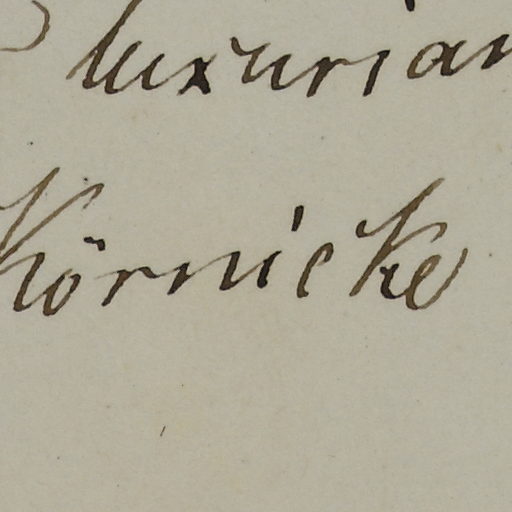 luxurian
Körnicke